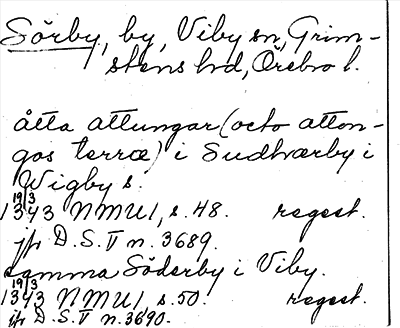 Sörby, by, Viby sn, Grim-
stens hd, Örebro l.
åtta attungar (octo atton-
gos terræ) i Sudhærby i
Wigby s.
19/3
1343 NMU 1, s. 48. regest.
jfr D.S. V n. 3689.
samma Söderby i Viby.
19/3
1343 NMU 1, s. 50. regest.
jfr D.S. V n. 3690.